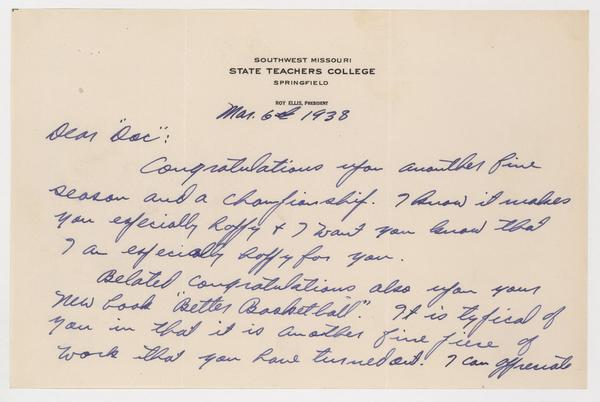 SOUTHWEST MISSOURI
STATE TEACHERS COLLEGE
SPRINGFIELD
ROY ELLIS, PRESIDENT
Mar. 6th 1938
Dear "Doc":
Congratulations upon anouther fine
season and a championship. I know it makes
you especially happy & I want you know that
I am especially happy for you.
Belated congratulations also upon your
new book "Better Basketball". It is typical of
you in that it is another fine piece of
work that you have turned out. I can appreciate